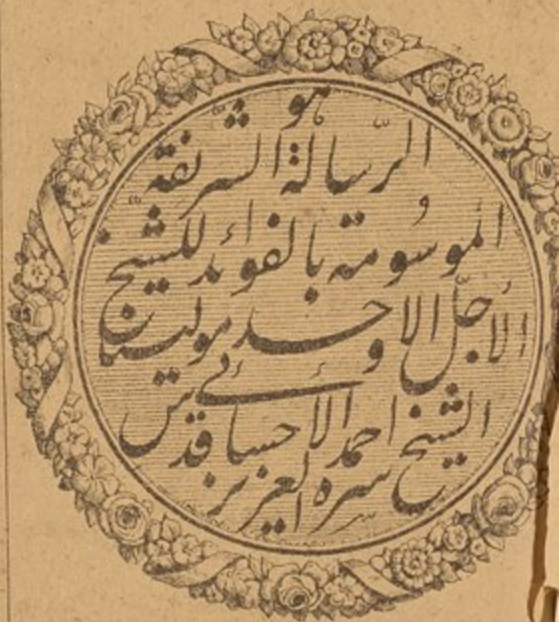 هو
الرّسالة الشریفة
الموسومة بالفوائد للشیخ
الاجلّ الاوحد مولینا
الشیخ احمد الاحسائی قدس
سره العزیز